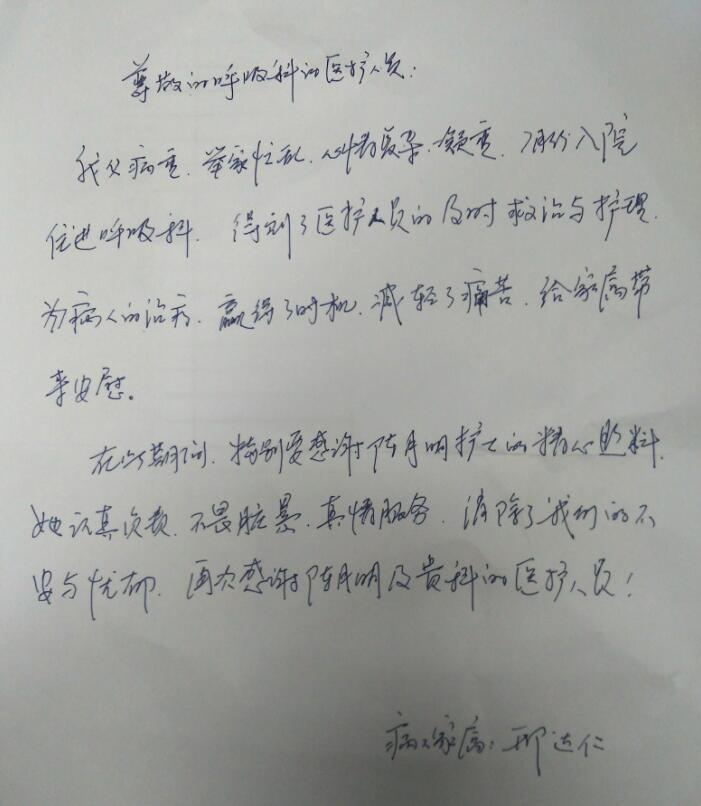 尊敬的呼吸科的医护人员:
我父病重、举家忙乱、心情复杂、凝重,7月份入院
住进呼吸科。得到了医护人员的及时救治与护理.
为病人的治疗、赢得了时机、减轻了痛苦、给家属带
来安慰。
在此期间、特别要感谢陈月明护士的精心照料.
她认真负责、不畏脏累、真情服务、消除了我们的不
安与忧郁、再次感谢陈月明及贵科的医护人员!
病人家属:邢达仁